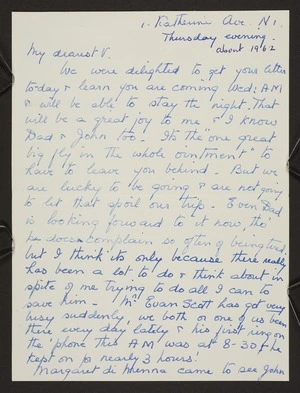 1. Katherine Ave. N1.
Thursday evening.
about 1962
My dearest V.
We were delighted to get your letter
today & learn you are coming Wed: AM
& will be able to stay the night. That
will be a great joy to me & I know
Dad & John too. It's the "one great
big fly in the whole ointment" to
have to leave you behind. But we
are lucky to be going & are not going
to let that spoil our trip. Even Dad
is looking forward to it now, tho'
he does complain so often of being tired,
but I think its only because there really
has been a lot to do & think about in
spite of me trying to do all I can to
save him. Mr Evan Scott has got very
busy suddenly & we both or one of us been
there every day lately & his first ring on
the 'phone this AM was at 8-30 & he
kept on for nearly 3 hours!
Margaret di Menna came to see John